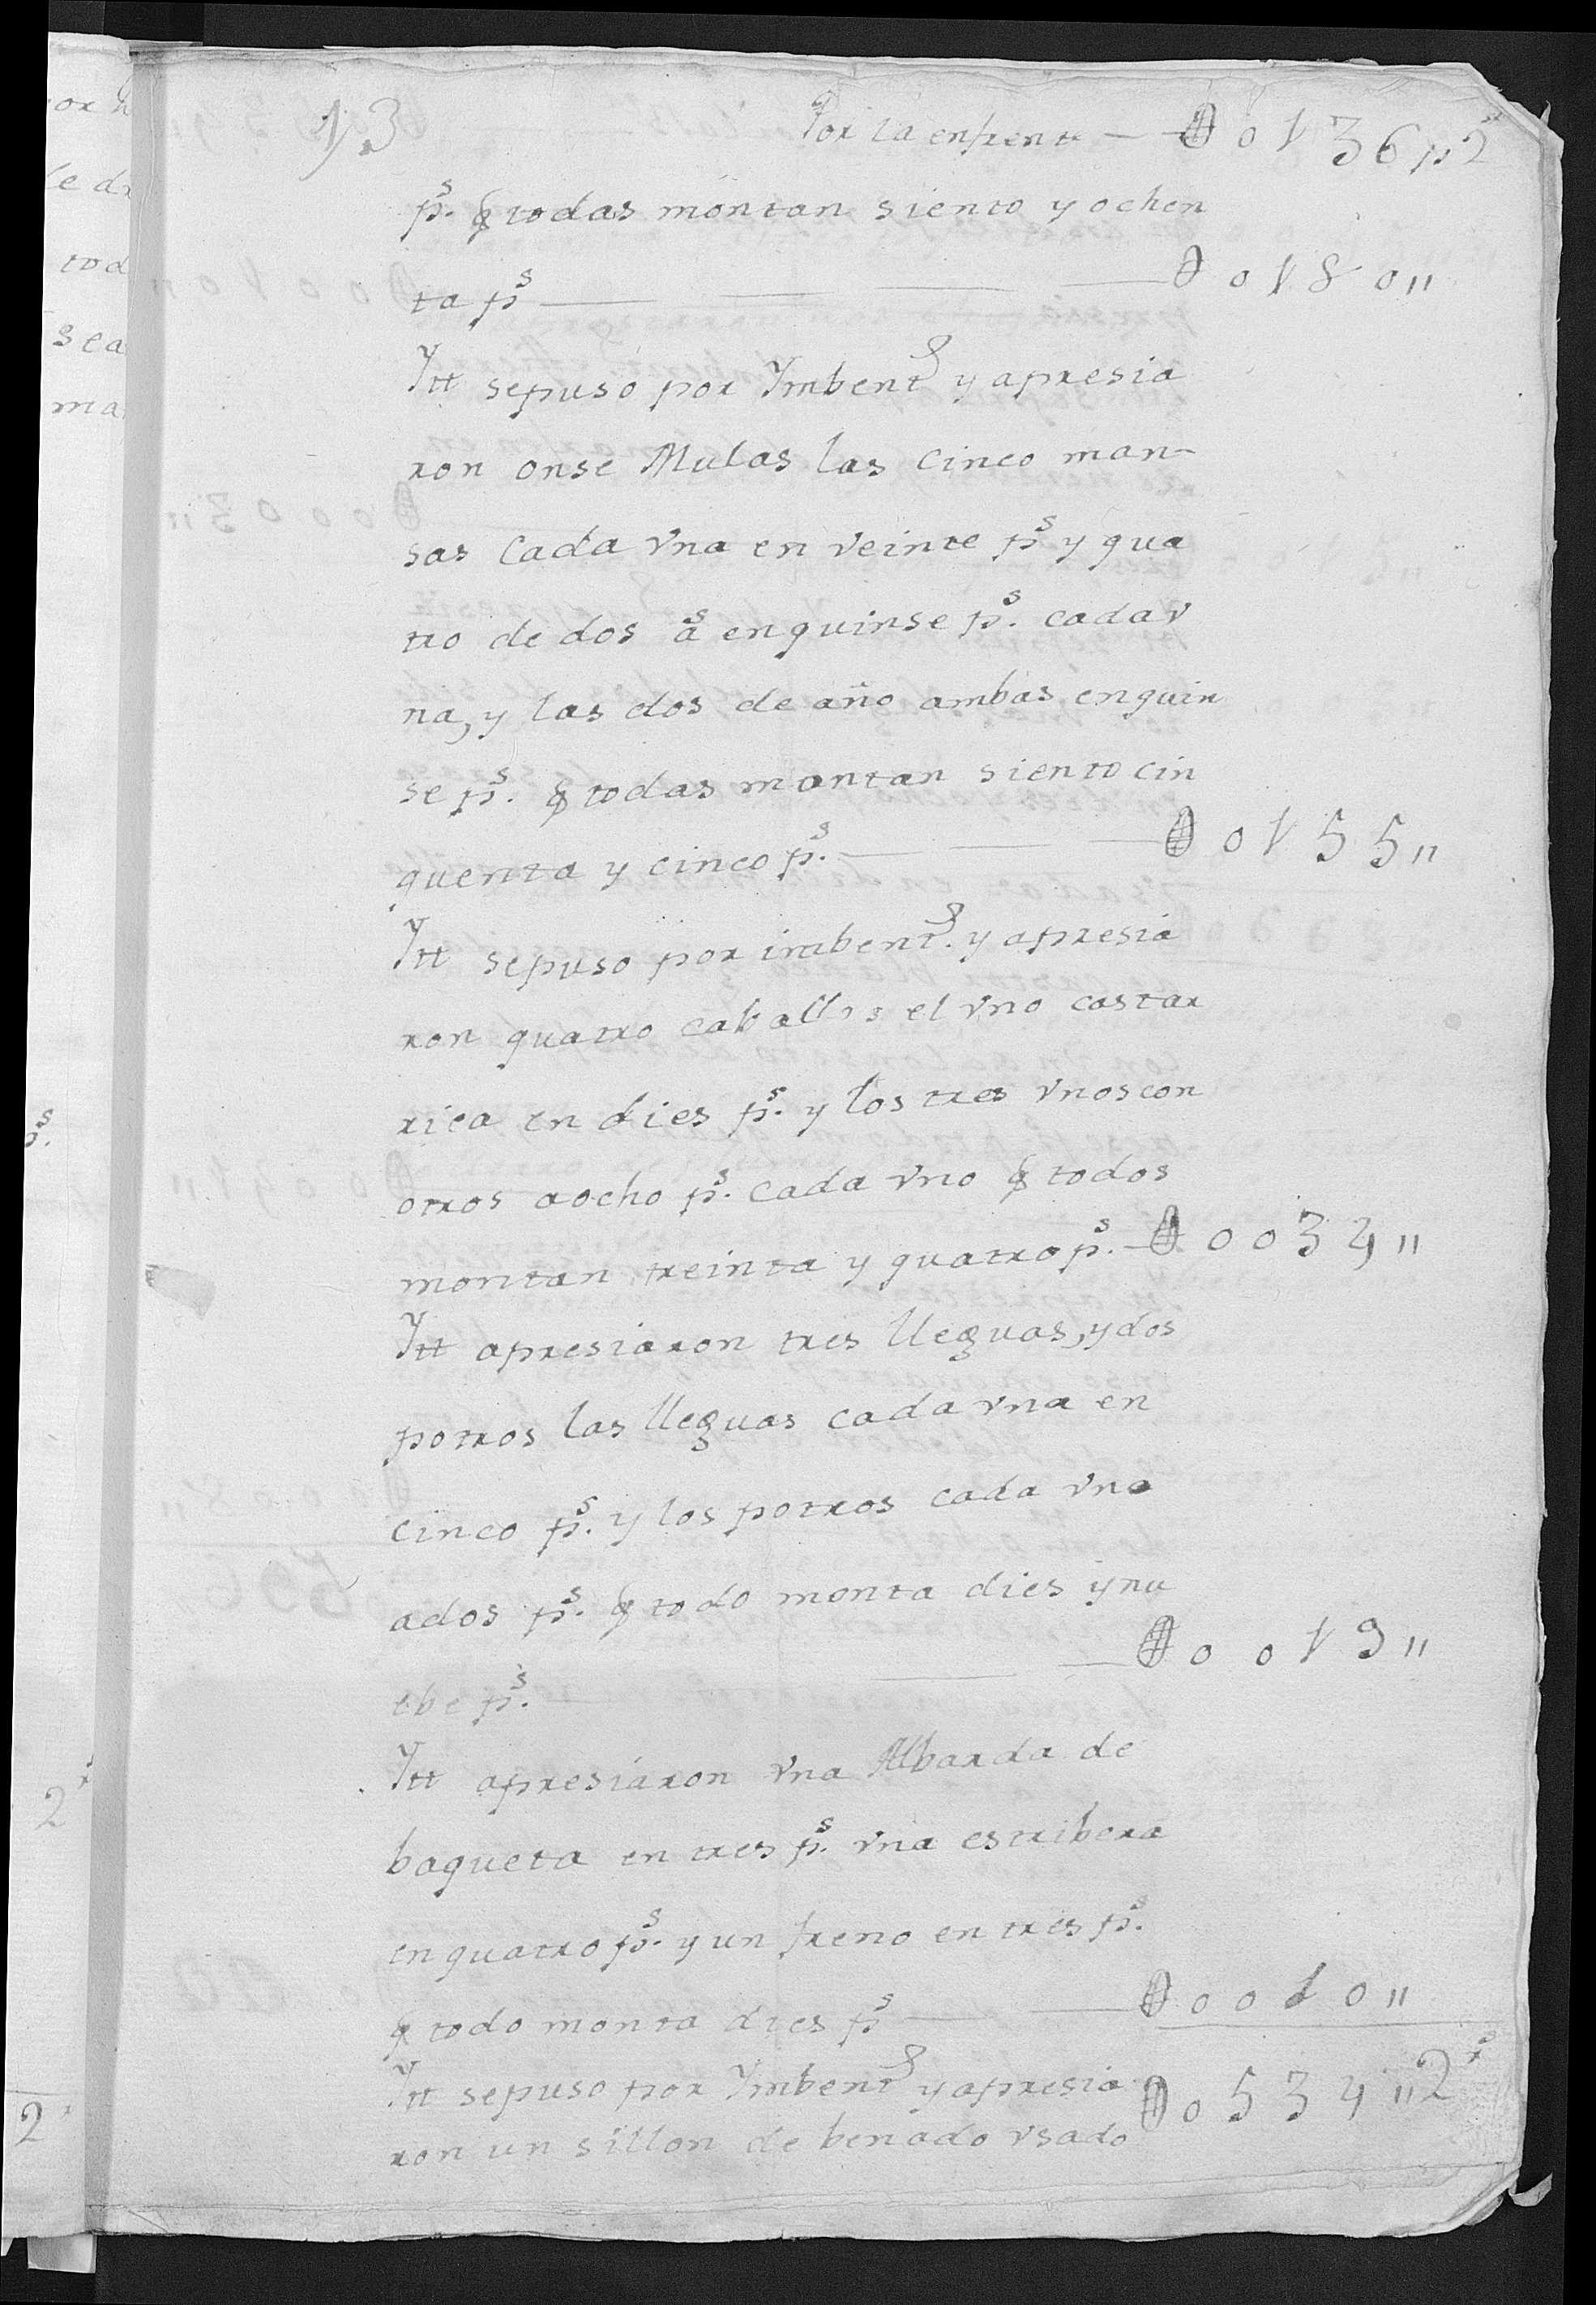 13
Por la enfrente — 0136 ps 2
ps. q todas montan siento y ochen
ta ps — 0180"
Ytt sepuso por Ymbento y apresia
ron onse Mulas las cinco man-
sas Cada vna en veinte ps y qua
tro de dos as en quinse ps. cada v
na, y las dos de año ambas en quin
se ps. q todas montan siento cin
quenta y cinco ps. — 0155"
Ytt sepuso por imbento. y apresia
ron quatro caballos el vno castar
rica en dies ps. y los tres vnos con
otros aocho ps. cada vno q todos
montan treinta y quatro ps. — 0034"
Ytt apresiaron tres lleguas, y dos
potros las lleguas cada vna en
cinco ps. y los potros cada vno
ados ps. q todo monta dies y nu
ebe ps. — 0019"
Ytt apresiaron vna Albarda de
baqueta en tres ps. vna estribera
en quatro ps. y un freno en tres ps.
q todo monta dies ps — 0010"
Ytt sepuso por Ymbento y apresia 0534"2r
ron un sillon de benado vsado